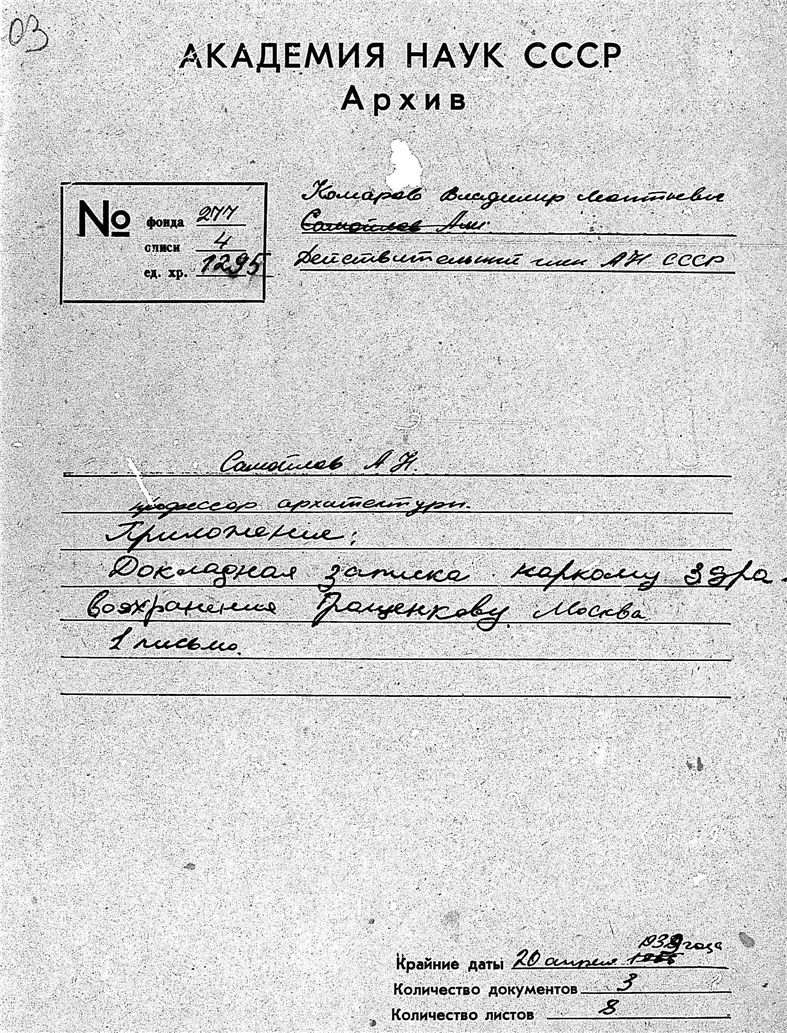 03
АКАДЕМИЯ НАУК СССР
Архив
№ фонда 277
описи 4
ед. хр. 1295
Комаров Владимир Леонтьевич
Самойлов А.Н.
Действительный член АН СССР
Самойлов А Н.
профессор архитектуры.
Приложение:
Докладная записка наркому здра-
воохранения Гращенкову. Москва
1 письмо.
1939 года
Крайние даты 20 апреля
Количество документов 3
Количество листов 8